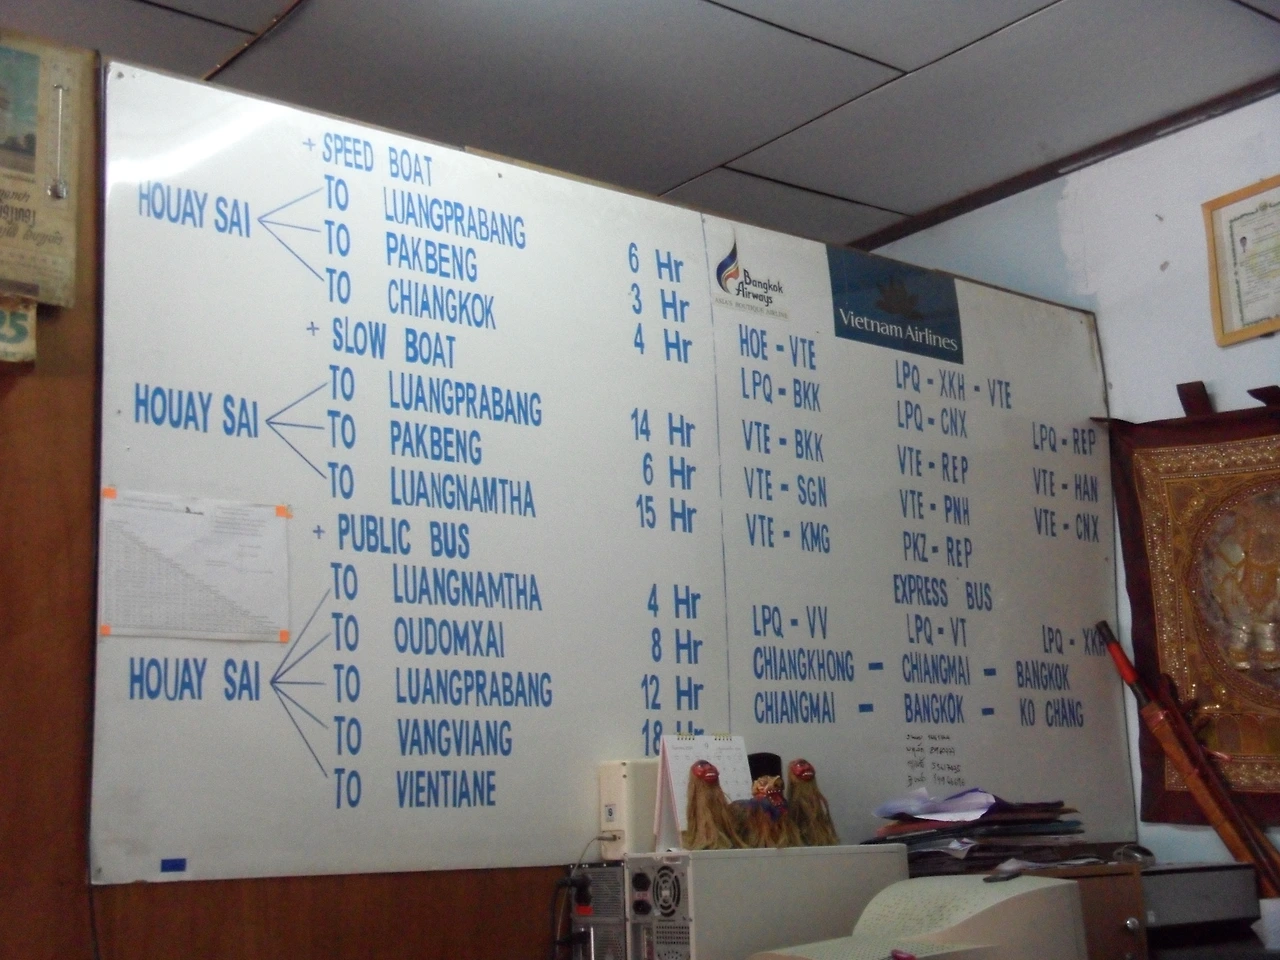 + SPEED BOAT
HOUAY SAI
TO LUANGPRABANG 6 Hr
TO PAKBENG 3 Hr
TO CHIANGKOK 4 Hr
+ SLOW BOAT
HOUAY SAI
TO LUANGPRABANG 14 Hr
TO PAKBENG 6 Hr
TO LUANGNAMTHA 15 Hr
+ PUBLIC BUS
HOUAY SAI
TO LUANGNAMTHA 4 Hr
TO OUDOMXAI 8 Hr
TO LUANGPRABANG 12 Hr
TO VANGVIANG 18 Hr
TO VIENTIANE
Bangkok
Airways
ASIA'S BOUTIQUE AIRLINE
Vietnam Airlines
HOE - VTE LPQ - XKH - VTE
LPQ - BKK LPQ - CNX LPQ - REP
VTE - BKK VTE - REP VTE - HAN
VTE - SGN VTE - PNH VTE - CNX
VTE - KMG PKZ - REP
EXPRESS BUS
LPQ - VV LPQ - VT LPQ - XKH
CHIANGKHONG - CHIANGMAI - BANGKOK
CHIANGMAI - BANGKOK - KO CHANG